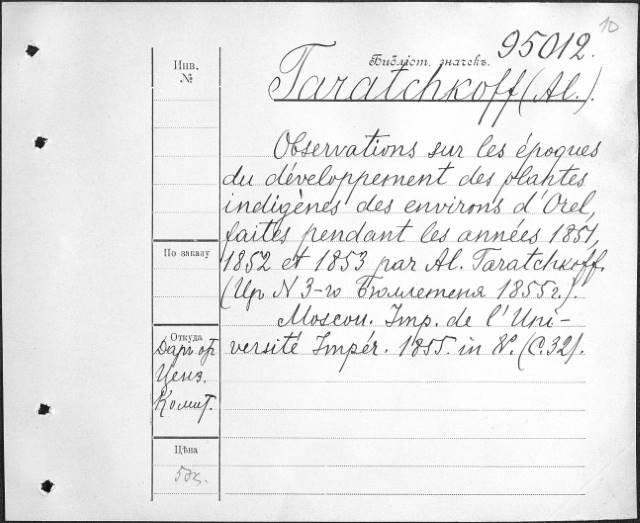 10
95012.
Инв.
№
Библіот. значекъ.
Taratchkoff (Al.).
Observations sur les époques
du développement des plantes
indigènes des environs d'Orel,
faites pendant les années 1851,
1852 et 1853 par Al. Taratchkoff.
По заказу
N 3-го Бюллетеня 1855 г.).
Moscou. Imp. de l'Uni-
Откуда
versité Impér. 1855. in (С. 32).
Даръ от
Ценз.
Комит.
Цѣна